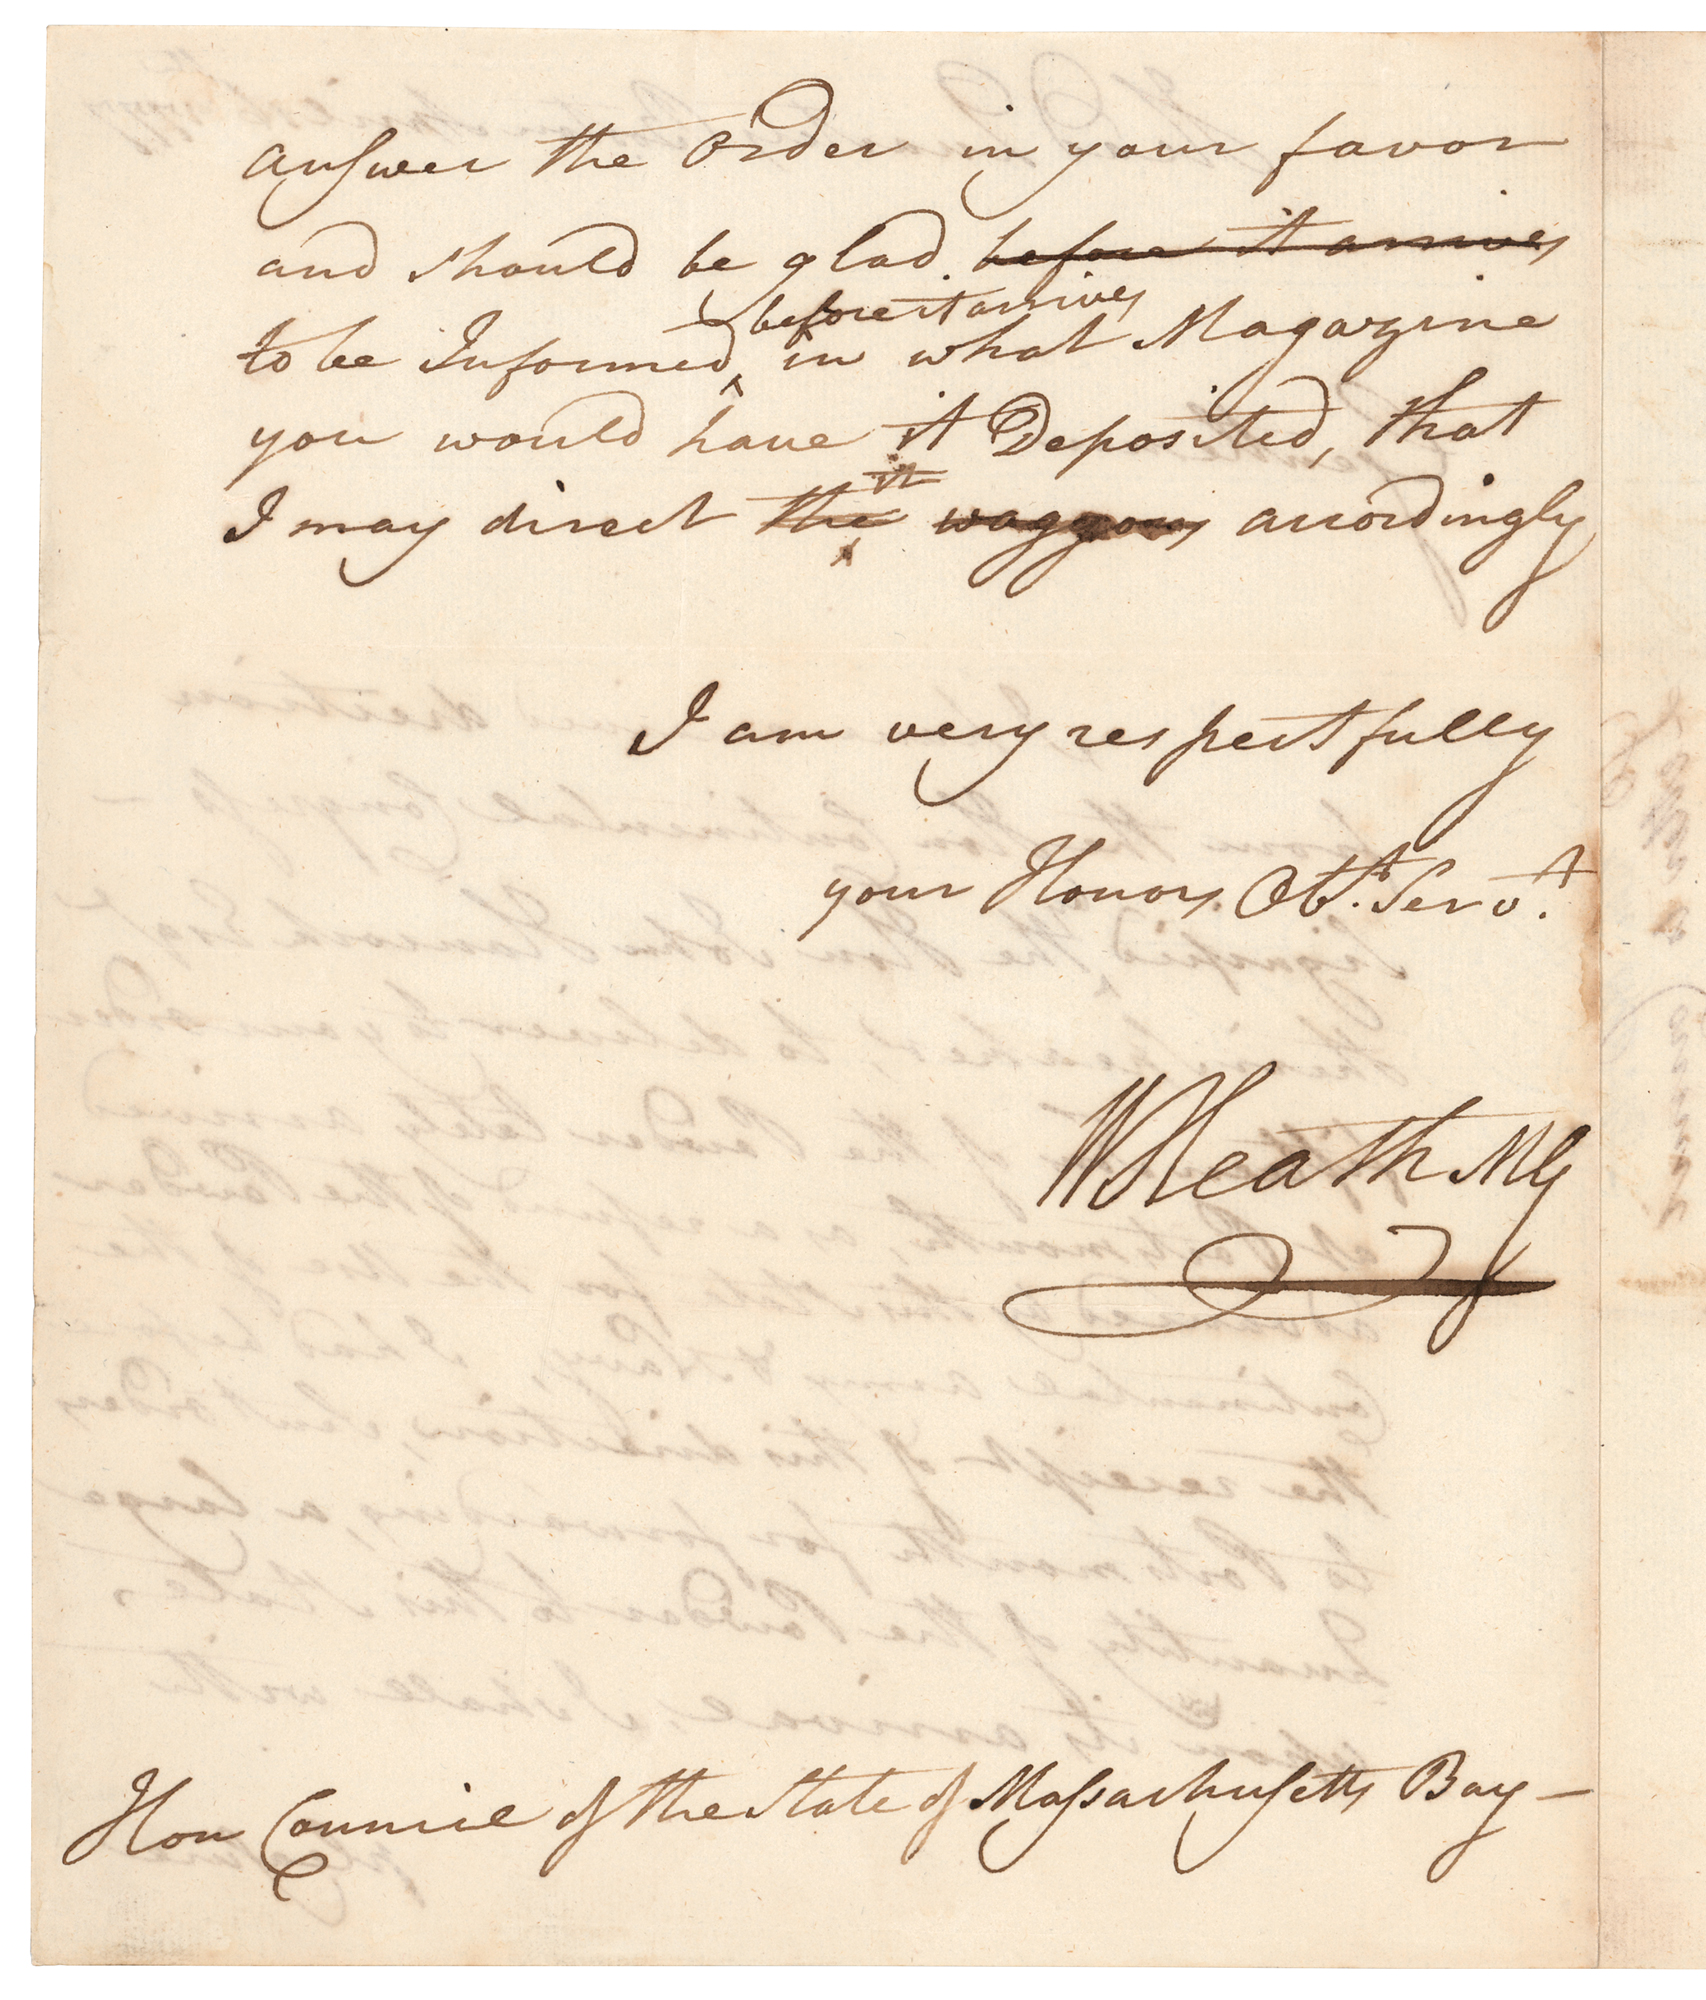 answer the Order in your favor
and should be glad. before it arrives
before it arrives
to be Informed, in what Magazine
you would have it Deposited, that
it
I may direct the waggons accordingly
I am very respectfully
your Honors Obt. Servt.
W Heath MG
Hon Council of the State of Massachusetts Bay —